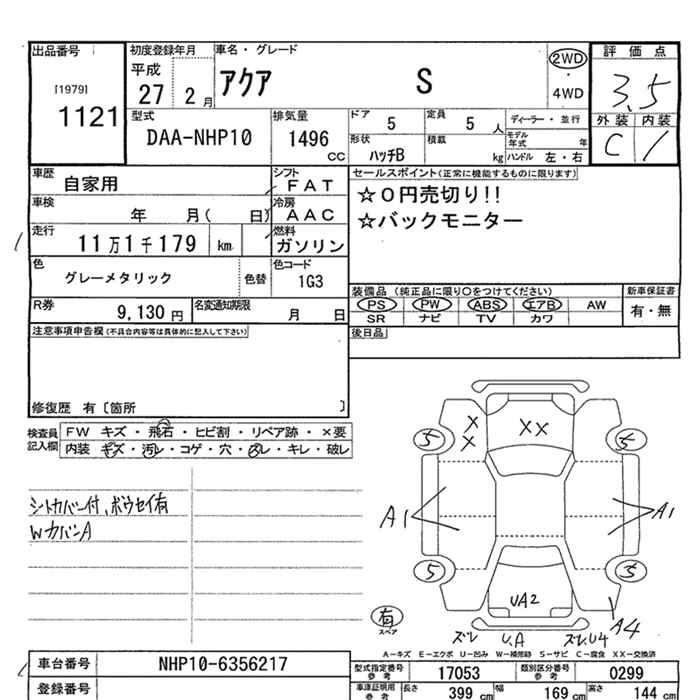 出品番号
[1979]
1121
初度登録年月
平成
27 2月
車名・グレード
アクア S
2WD
・
4WD
評価点
3.5
外装 内装
C /
型式
DAA-NHP10
排気量
1496
CC
ドア
5
定員
5 人
形状
ハッチB
積載
kg
ディーラー・並行
モデル年式 年
ハンドル 左・右
車歴
自家用
シフト
FAT
車検
年 月( 日)
冷房
AAC
走行
11万1千179 km
燃料
ガソリン
色
グレーメタリック
色替
色コード
1G3
R券
9,130円
名変通知期限
月 日
セールスポイント(正常に機能するものに限ります)
☆0円売切り!!
☆バックモニター
装備品 (純正品に限り○をつけてください)
新車保証書
PS PW ABS エアB AW
SR ナビ TV カワ
有・無
後日品
注意事項申告欄(不具合内容等は具体的に記入して下さい)
修復歴 有〔箇所 〕
検査員記入欄
FW キズ・飛石・ヒビ割・リペア跡・×要
内装 キズ・汚レ・コゲ・穴・スレ・キレ・破レ
シートカバー付、ボウセイ有
WカバーA
X
X
XX
5 5
A1 A1
5 5
UA2
A4
有
スペア
ズレ U.A ズレ.U4
A-キズ E-エクボ U-凹み W-補修跡 S-サビ C-腐食 XX-交換済
車台番号
NHP10-6356217
登録番号
型式指定番号
参考
17053
類別区分番号
参考
0299
車庫証明用
参考
長さ
399 cm
幅
169 cm
高さ
144 cm